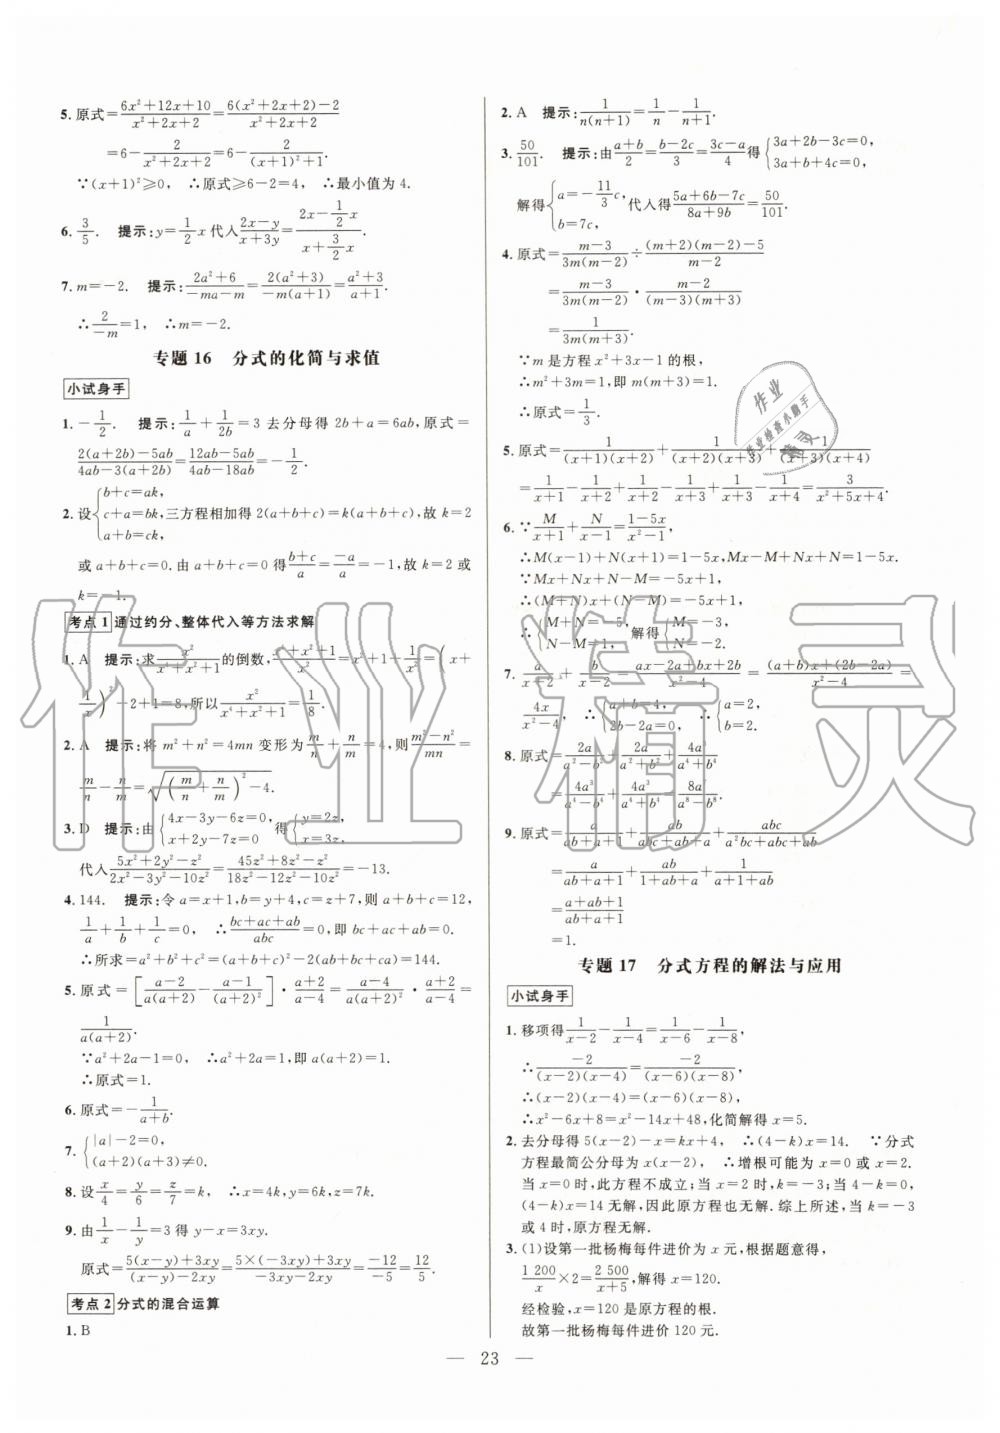 5. 原式=\frac{6x²+12x+10}{x²+2x+2}=\frac{6(x²+2x+2)-2}{x²+2x+2}
=6-\frac{2}{x²+2x+2}=6-\frac{2}{(x+1)²+1}.
∵(x+1)²≥0, ∴原式≥6-2=4, ∴最小值为 4.
6. \frac{3}{5}. 提示:y=\frac{1}{2}x代入\frac{2x-y}{x+3y}=\frac{2x-\frac{1}{2}x}{x+\frac{3}{2}x}
7. m=-2. 提示:\frac{2a²+6}{-ma-m}=\frac{2(a²+3)}{-m(a+1)}=\frac{a²+3}{a+1}.
∴\frac{2}{-m}=1, ∴m=-2.
专题 16 分式的化简与求值
小试身手
1. -\frac{1}{2}. 提示:\frac{1}{a}+\frac{1}{2b}=3 去分母得 2b+a=6ab,原式=
\frac{2(a+2b)-5ab}{4ab-3(a+2b)}=\frac{12ab-5ab}{4ab-18ab}=-\frac{1}{2}.
2. 设{b+c=ak, c+a=bk, a+b=ck,三方程相加得 2(a+b+c)=k(a+b+c),故 k=2
或 a+b+c=0.由 a+b+c=0 得\frac{b+c}{a}=\frac{-a}{a}=-1,故 k=2 或
k=-1.
考点 1 通过约分、整体代入等方法求解
1. A 提示:求\frac{x²}{x⁴+x²+1}的倒数,\frac{x⁴+x²+1}{x²}=x²+1+\frac{1}{x²}=(x+
\frac{1}{x})²-2+1=8,所以\frac{x²}{x⁴+x²+1}=\frac{1}{8}.
2. A 提示:将 m²+n²=4mn 变形为\frac{m}{n}+\frac{n}{m}=4,则\frac{m²-n²}{mn}=
\frac{m}{n}-\frac{n}{m}=\sqrt{(\frac{m}{n}+\frac{n}{m})²-4}.
3. D 提示:由{4x-3y-6z=0, x+2y-7z=0 得{y=2z, x=3z.
代入\frac{5x²+2y²-z²}{2x²-3y²-10z²}=\frac{45z²+8z²-z²}{18z²-12z²-10z²}=-13.
4. 144. 提示:令 a=x+1,b=y+4,c=z+7,则 a+b+c=12,
\frac{1}{a}+\frac{1}{b}+\frac{1}{c}=0, ∴\frac{bc+ac+ab}{abc}=0,即 bc+ac+ab=0.
∴所求=a²+b²+c²=(a+b+c)²-2(ab+bc+ca)=144.
5. 原式=[\frac{a-2}{a(a+2)}-\frac{a-1}{(a+2)²}]·\frac{a+2}{a-4}=\frac{a-4}{a(a+2)²}·\frac{a+2}{a-4}=
\frac{1}{a(a+2)}.
∵a²+2a-1=0, ∴a²+2a=1,即 a(a+2)=1.
∴原式=1.
6. 原式=-\frac{1}{a+b}.
7. {|a|-2=0, (a+2)(a+3)≠0.
8. 设\frac{x}{4}=\frac{y}{6}=\frac{z}{7}=k, ∴x=4k,y=6k,z=7k.
9. 由\frac{1}{x}-\frac{1}{y}=3 得 y-x=3xy.
原式=\frac{5(x-y)+3xy}{(x-y)-2xy}=\frac{5×(-3xy)+3xy}{-3xy-2xy}=\frac{-12}{-5}=\frac{12}{5}.
考点 2 分式的混合运算
1. B
2. A 提示:\frac{1}{n(n+1)}=\frac{1}{n}-\frac{1}{n+1}.
3. \frac{50}{101}. 提示:由\frac{a+b}{2}=\frac{b-2c}{3}=\frac{3c-a}{4}得{3a+2b-3c=0, 3a+4b+4c=0,
解得{a=-\frac{11}{3}c, b=7c,代入得\frac{5a+6b-7c}{8a+9b}=\frac{50}{101}.
4. 原式=\frac{m-3}{3m(m-2)}÷\frac{(m+2)(m-2)-5}{m-2}
=\frac{m-3}{3m(m-2)}·\frac{m-2}{(m-3)(m+3)}
=\frac{1}{3m(m+3)}.
∵m是方程 x²+3x-1 的根,
∴m²+3m=1,即 m(m+3)=1.
∴原式=\frac{1}{3}.
5. 原式=\frac{1}{(x+1)(x+2)}+\frac{1}{(x+2)(x+3)}+\frac{1}{(x+3)(x+4)}
=\frac{1}{x+1}-\frac{1}{x+2}+\frac{1}{x+2}-\frac{1}{x+3}+\frac{1}{x+3}-\frac{1}{x+4}=\frac{3}{x²+5x+4}.
6. ∵\frac{M}{x+1}+\frac{N}{x-1}=\frac{1-5x}{x²-1},
∴M(x-1)+N(x+1)=1-5x,Mx-M+Nx+N=1-5x.
∵Mx+Nx+N-M=1-5x,
∴(M+N)x+(N-M)=-5x+1,
∴{M+N=-5, N-M=1, 解得{M=-3, N=-2.
7. \frac{a}{x+2}+\frac{b}{x-2}=\frac{ax-2a+bx+2b}{x²-4}=\frac{(a+b)x+(2b-2a)}{x²-4}=
\frac{4x}{x²-4}, ∴{a+b=4, 2b-2a=0, ∴{a=2, b=2.
8. 原式=\frac{2a}{a²-b²}+\frac{2a}{a²+b²}+\frac{4a³}{a⁴+b⁴}
=\frac{4a³}{a⁴-b⁴}+\frac{4a³}{a⁴+b⁴}=\frac{8a⁷}{a⁸-b⁸}.
9. 原式=\frac{a}{ab+a+1}+\frac{ab}{abc+ab+a}+\frac{abc}{a²bc+abc+ab}
=\frac{a}{ab+a+1}+\frac{ab}{1+ab+a}+\frac{1}{a+1+ab}
=\frac{a+ab+1}{ab+a+1}
=1.
专题 17 分式方程的解法与应用
小试身手
1. 移项得\frac{1}{x-2}-\frac{1}{x-4}=\frac{1}{x-6}-\frac{1}{x-8},
∴\frac{-2}{(x-2)(x-4)}=\frac{-2}{(x-6)(x-8)},
∴(x-2)(x-4)=(x-6)(x-8),
∴x²-6x+8=x²-14x+48,化简解得 x=5.
2. 去分母得 5(x-2)-x=kx+4, ∴(4-k)x=14. ∵分式
方程最简公分母为 x(x-2), ∴增根可能为 x=0 或 x=2.
当 x=0 时,此方程不成立;当 x=2 时,k=-3;当 4-k=0,
(4-k)x=14 无解,因此原方程也无解.综上所述,当 k=-3
或 4 时,原方程无解.
3. (1)设第一批杨梅每件进价为 x 元,根据题意得,
\frac{1 200}{x}×2=\frac{2 500}{x+5},解得 x=120.
经检验,x=120 是原方程的根.
故第一批杨梅每件进价 120 元.
— 23 —
作业精灵
作业
作业检查小助手
精灵